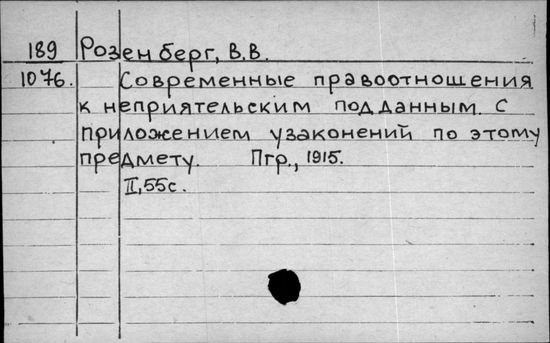 189 Розенберг, В.В.
1076. Современные правоотношения
к неприятельским подданным. С
приложением узаконений по этому
предмету. Пгр., 1915.
II, 55с.